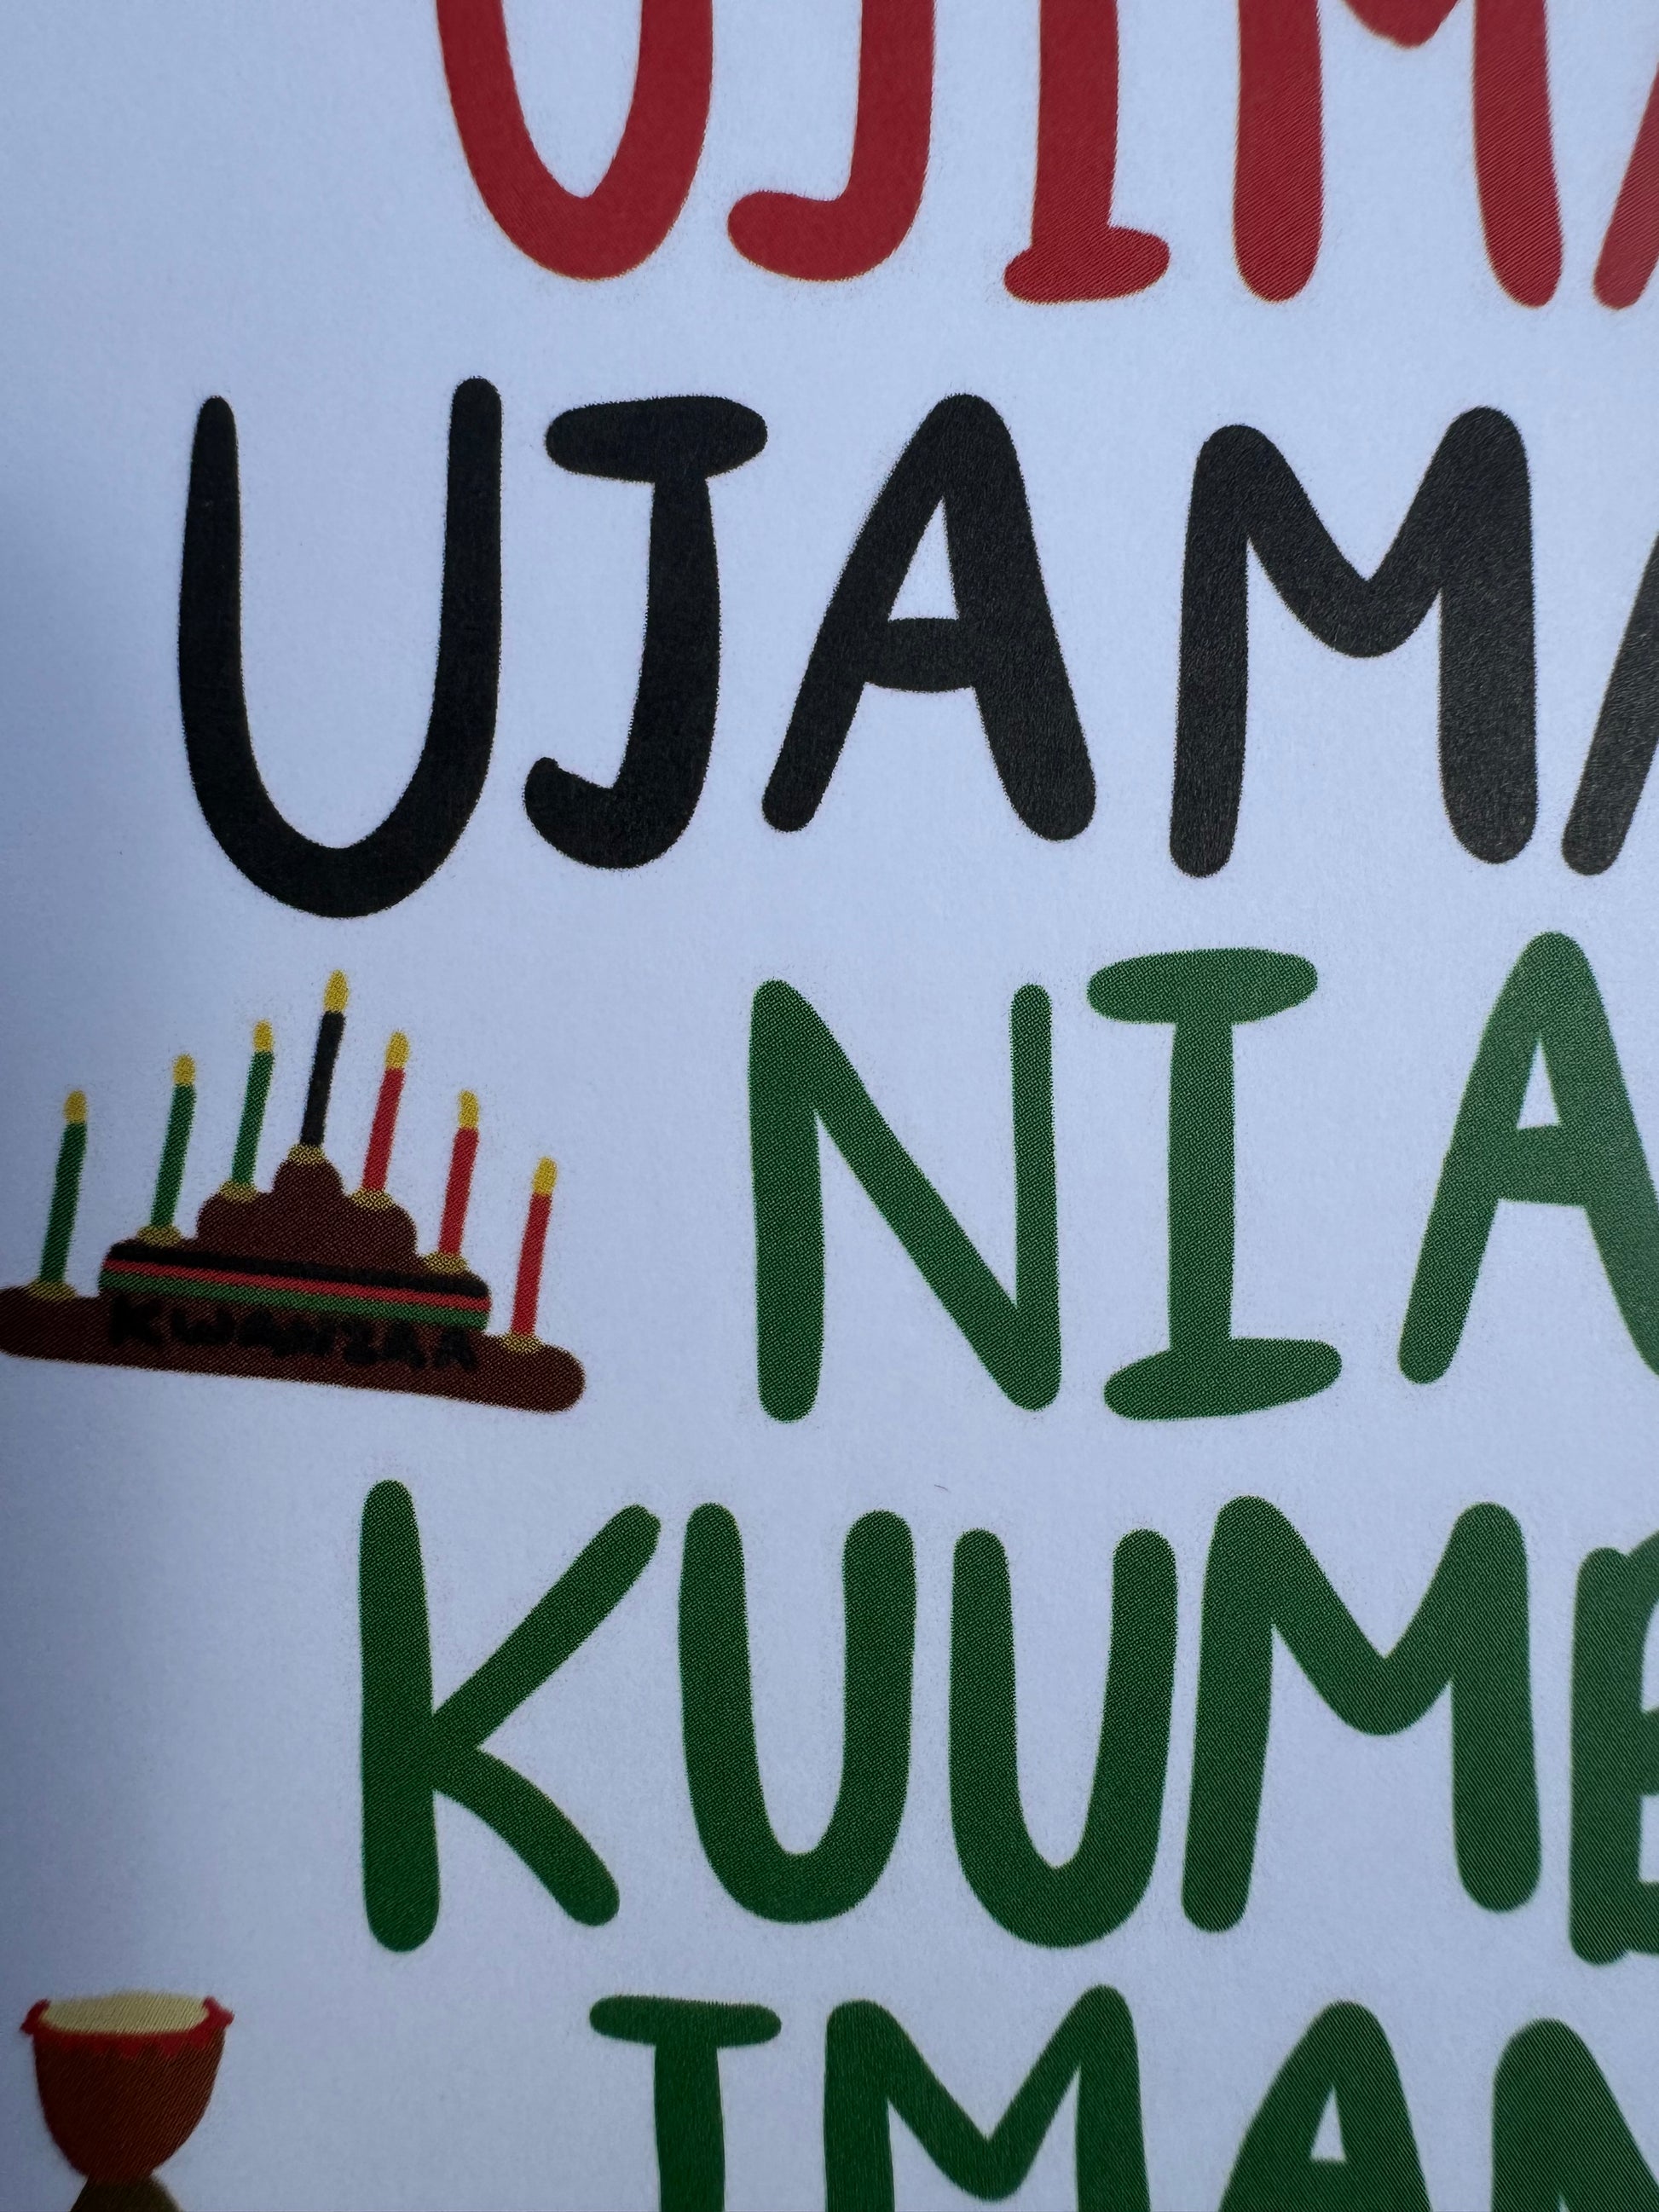 UJIMA
UJAMA
NIA
KWANZAA
KUUMB
IMAN